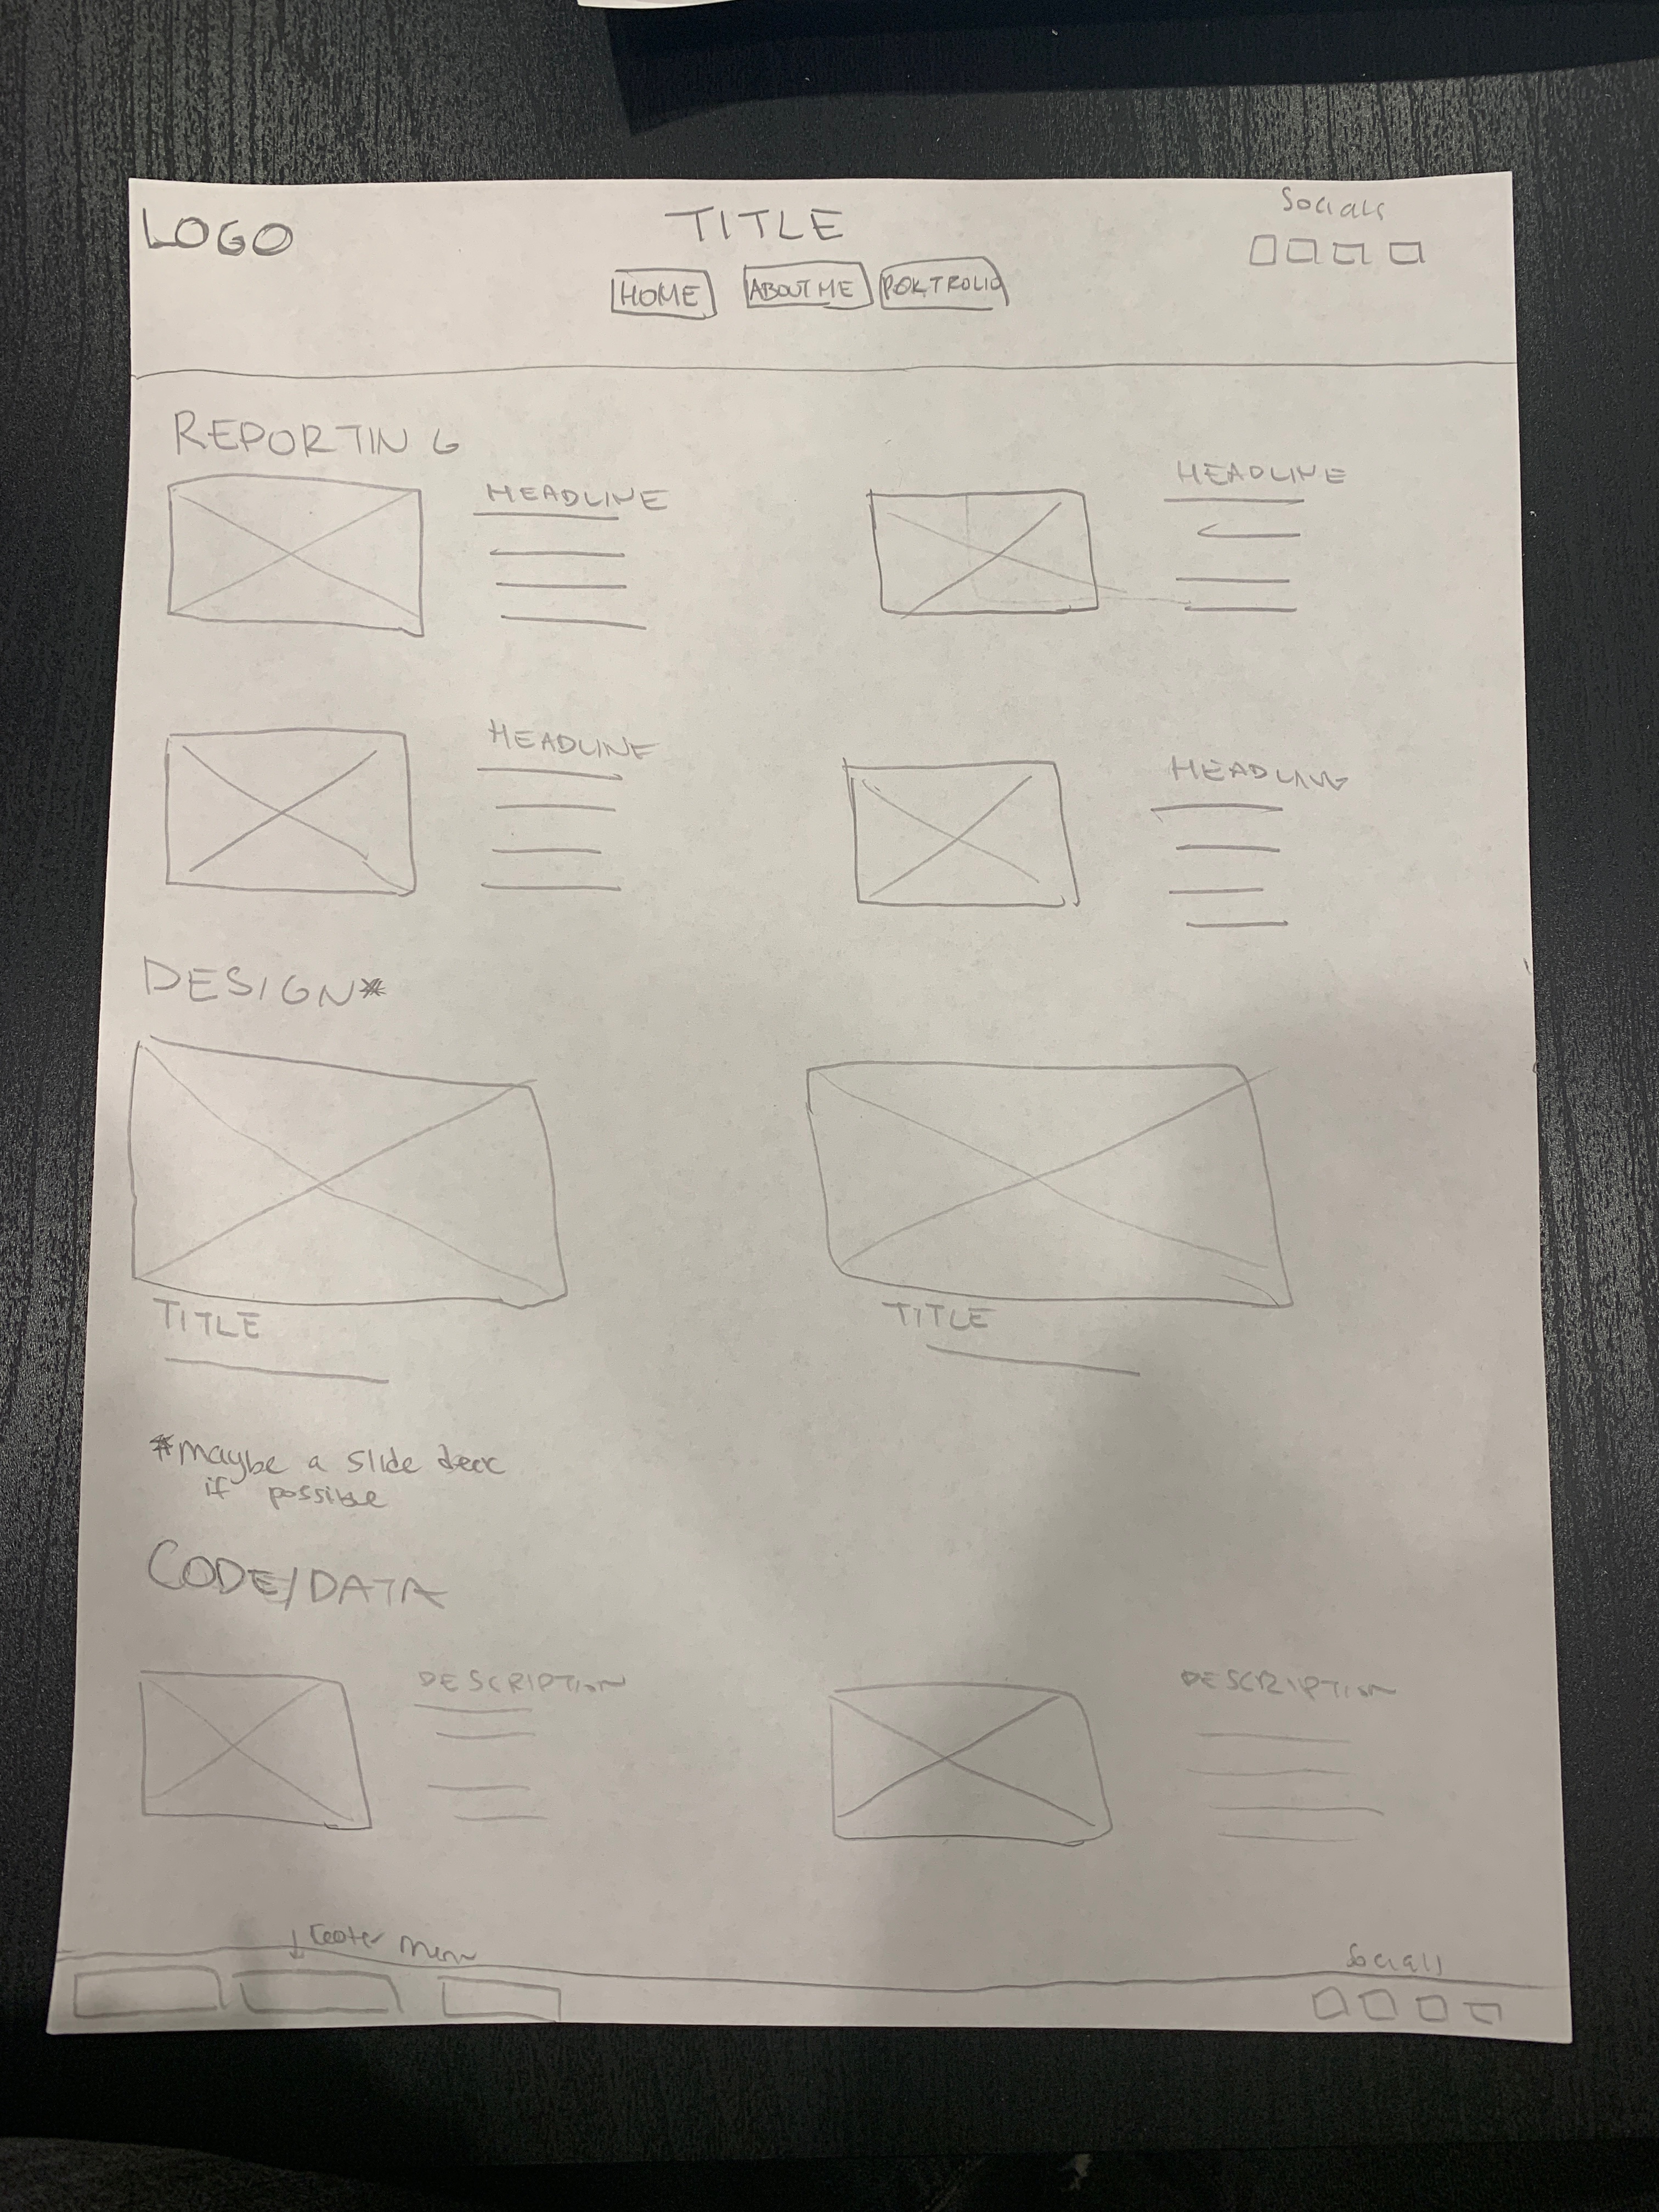 LOGO
TITLE
Socials
HOME
ABOUT ME
PORTFOLIO
REPORTING
HEADLINE
HEADLINE
HEADLINE
HEADLINE
DESIGN*
TITLE
TITLE
*maybe a slide deck
if possible
CODE/DATA
DESCRIPTION
DESCRIPTION
↓ footer menu
Socials